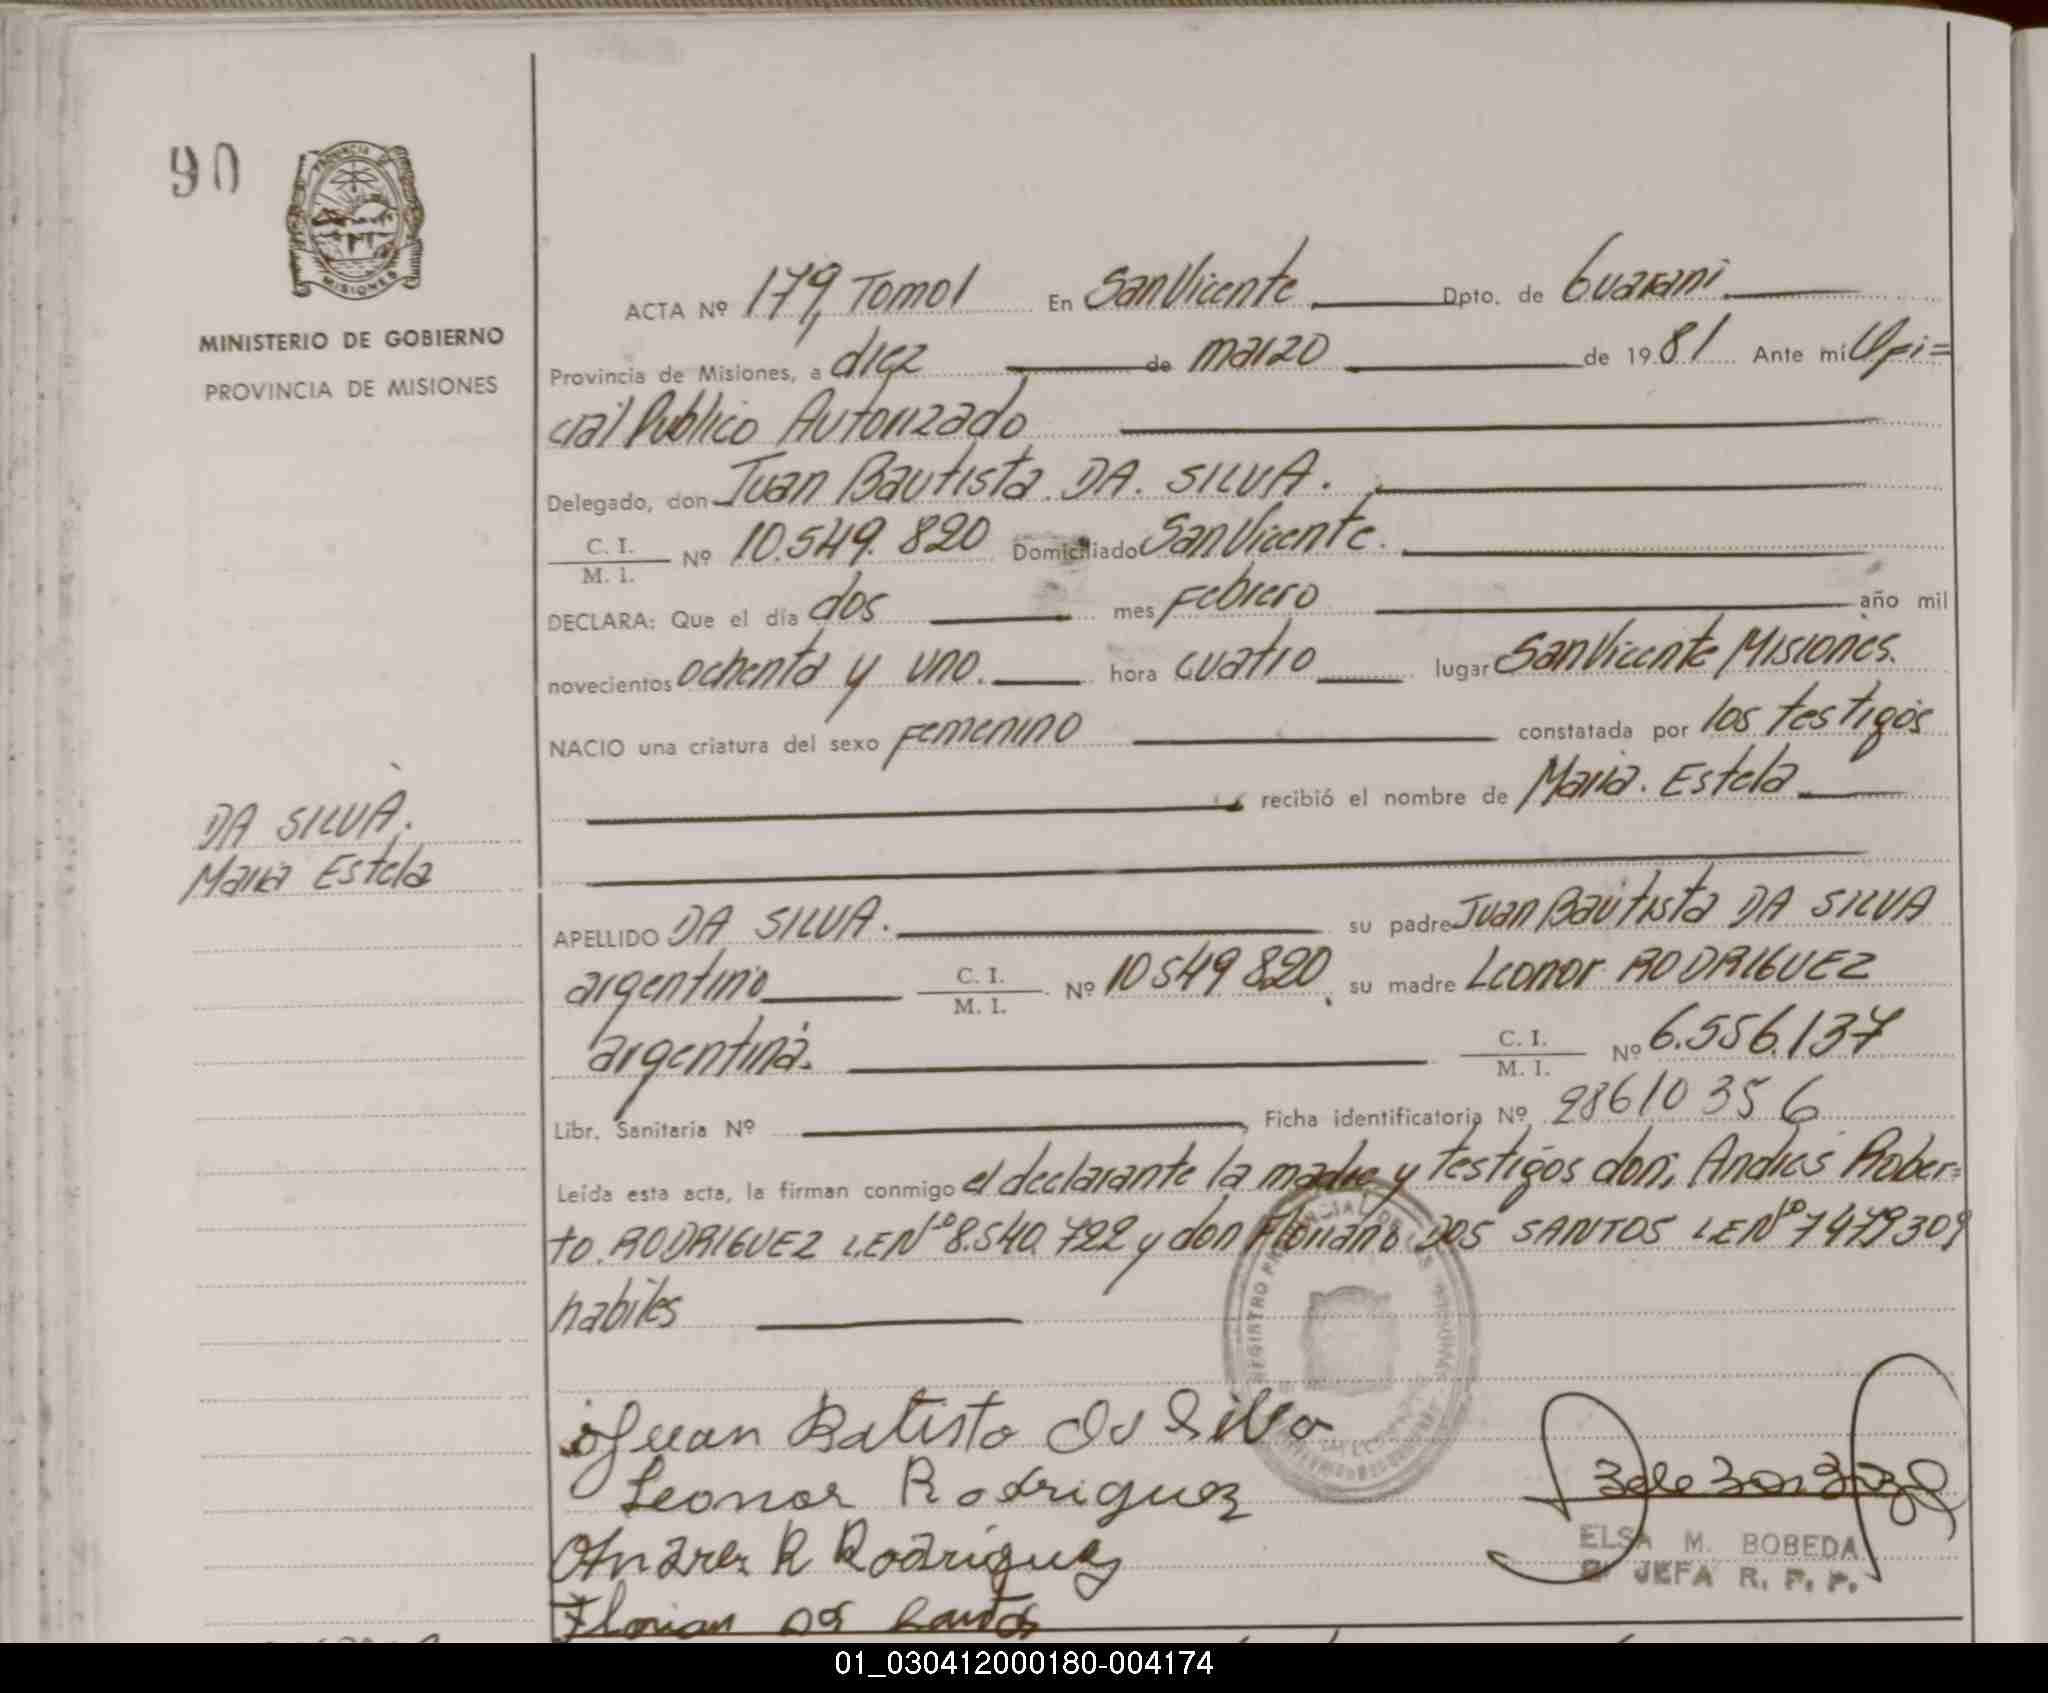 90
PROVINCIA DE
MISIONES
MINISTERIO DE GOBIERNO
PROVINCIA DE MISIONES
ACTA Nº 179, Tomo 1 En San Vicente Dpto. de Guarani
Provincia de Misiones, a diez de marzo de 1981 Ante mi Ofi=
cial Publico Autorizado
Delegado, don Juan Bautista DA. SILVA.
C. I. / M. I. Nº 10.549.820 Domiciliado San Vicente.
DECLARA: Que el día dos mes Febrero año mil
novecientos ochenta y uno. hora cuatro lugar San Vicente Misiones.
NACIO una criatura del sexo Femenino constatada por los testigos
recibió el nombre de Maria. Estela
DA SILVA.
Maria Estela
APELLIDO DA SILVA. su padre Juan Bautista DA SILVA
argentino C. I. / M. I. Nº 10549820, su madre Leonor RODRIGUEZ
argentina. C. I. / M. I. Nº 6.556.137
Libr. Sanitaria Nº Ficha identificatoria Nº 28610356
Leída esta acta, la firman conmigo el declarante la madre y testigos don; Andres Rober=
to. RODRIGUEZ L.E Nº 8.540.722 y don Floriano DOS SANTOS L.E Nº 7479309
habiles
REGISTRO
Juan Batista da Silva
Leonor Rodriguez
Andres R Rodriguez
Florian dos Santos
ELSA M. BOBEDA
JEFA R. P. P.
01_030412000180-004174